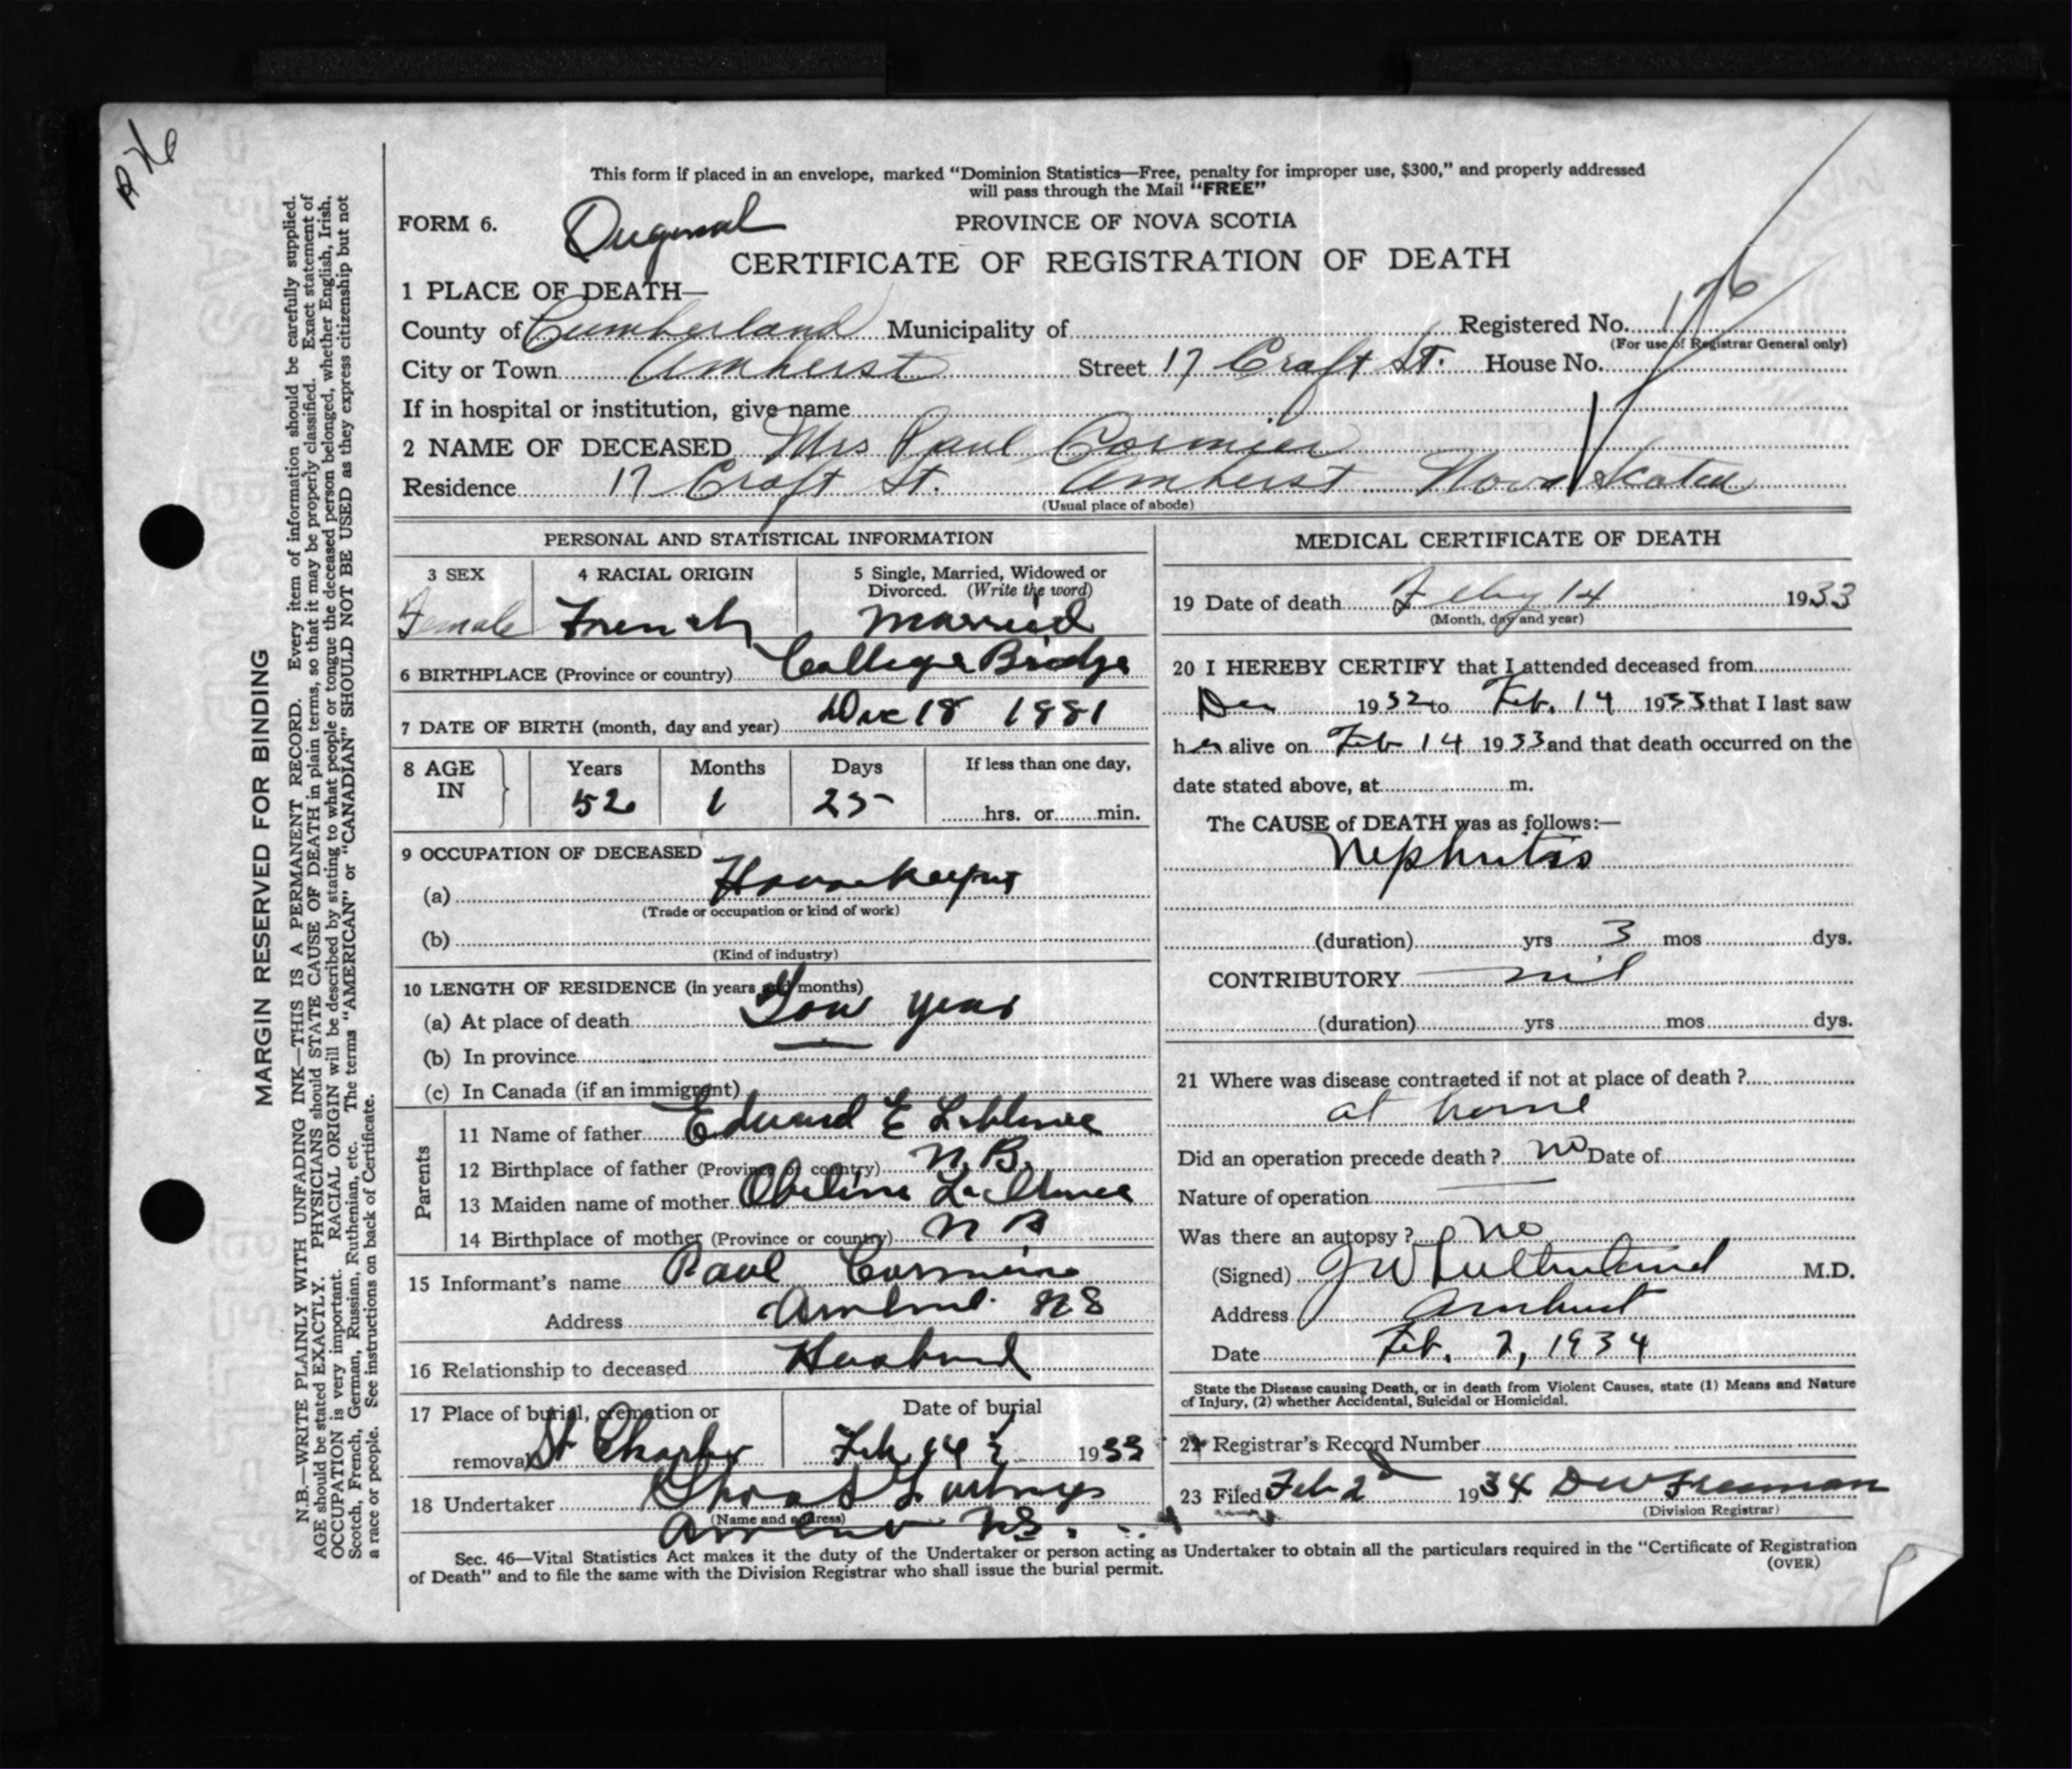 This form if placed in an envelope, marked "Dominion Statistics—Free, penalty for improper use, $300," and properly addressed
will pass through the Mail "FREE"
FORM 6. Original PROVINCE OF NOVA SCOTIA
CERTIFICATE OF REGISTRATION OF DEATH
1 PLACE OF DEATH—
County of Cumberland Municipality of Registered No. 176
(For use of Registrar General only)
City or Town Amherst Street 17 Craft St. House No.
If in hospital or institution, give name
2 NAME OF DECEASED Mrs Paul Cormier
Residence 17 Craft St. Amherst Nova Scotia
(Usual place of abode)
PERSONAL AND STATISTICAL INFORMATION
3 SEX 4 RACIAL ORIGIN 5 Single, Married, Widowed or
Divorced. (Write the word)
Female French Married
6 BIRTHPLACE (Province or country) College Bridge
7 DATE OF BIRTH (month, day and year) Dec 18 1881
8 AGE IN Years Months Days If less than one day,
52 1 25 hrs. or min.
9 OCCUPATION OF DECEASED
(a) Housekeeper
(Trade or occupation or kind of work)
(b)
(Kind of industry)
10 LENGTH OF RESIDENCE (in years and months)
(a) At place of death year
(b) In province
(c) In Canada (if an immigrant)
Parents
11 Name of father Edward E LeBlance
12 Birthplace of father (Province or country) N.B.
13 Maiden name of mother Obeline LeBlance
14 Birthplace of mother (Province or country) N B
15 Informant's name Paul Cormier
Address Amherst N S
16 Relationship to deceased Husband
17 Place of burial, cremation or Date of burial
removal St Charles Feb 14 1933
18 Undertaker
(Name and address)
Amherst N.S.
MEDICAL CERTIFICATE OF DEATH
19 Date of death Feby 14 1933
(Month, day and year)
20 I HEREBY CERTIFY that I attended deceased from
Dec 1932 to Feb. 14 1933 that I last saw
her alive on Feb 14 1933 and that death occurred on the
date stated above, at m.
The CAUSE of DEATH was as follows:—
Nephritis
(duration) yrs 3 mos dys.
CONTRIBUTORY nil
(duration) yrs mos dys.
21 Where was disease contracted if not at place of death ?
at home
Did an operation precede death ? no Date of
Nature of operation
Was there an autopsy ? no
(Signed) J W Sutherland M.D.
Address Amherst
Date Feb. 2, 1934
State the Disease causing Death, or in death from Violent Causes, state (1) Means and Nature
of Injury, (2) whether Accidental, Suicidal or Homicidal.
22 Registrar's Record Number
23 Filed Feb 2d 1934 D W Freeman
(Division Registrar)
Sec. 46—Vital Statistics Act makes it the duty of the Undertaker or person acting as Undertaker to obtain all the particulars required in the "Certificate of Registration
of Death" and to file the same with the Division Registrar who shall issue the burial permit.
(OVER)
MARGIN RESERVED FOR BINDING
N.B.—WRITE PLAINLY WITH UNFADING INK—THIS IS A PERMANENT RECORD. Every item of information should be carefully supplied.
AGE should be stated EXACTLY. PHYSICIANS should STATE CAUSE OF DEATH in plain terms, so that it may be properly classified. Exact statement of
OCCUPATION is very important. RACIAL ORIGIN will be described by stating to what people or tongue the deceased person belonged, whether English, Irish,
Scotch, French, German, Russian, Ruthenian, etc. The terms "AMERICAN" or "CANADIAN" SHOULD NOT BE USED as they express citizenship but not
a race or people. See instructions on back of Certificate.